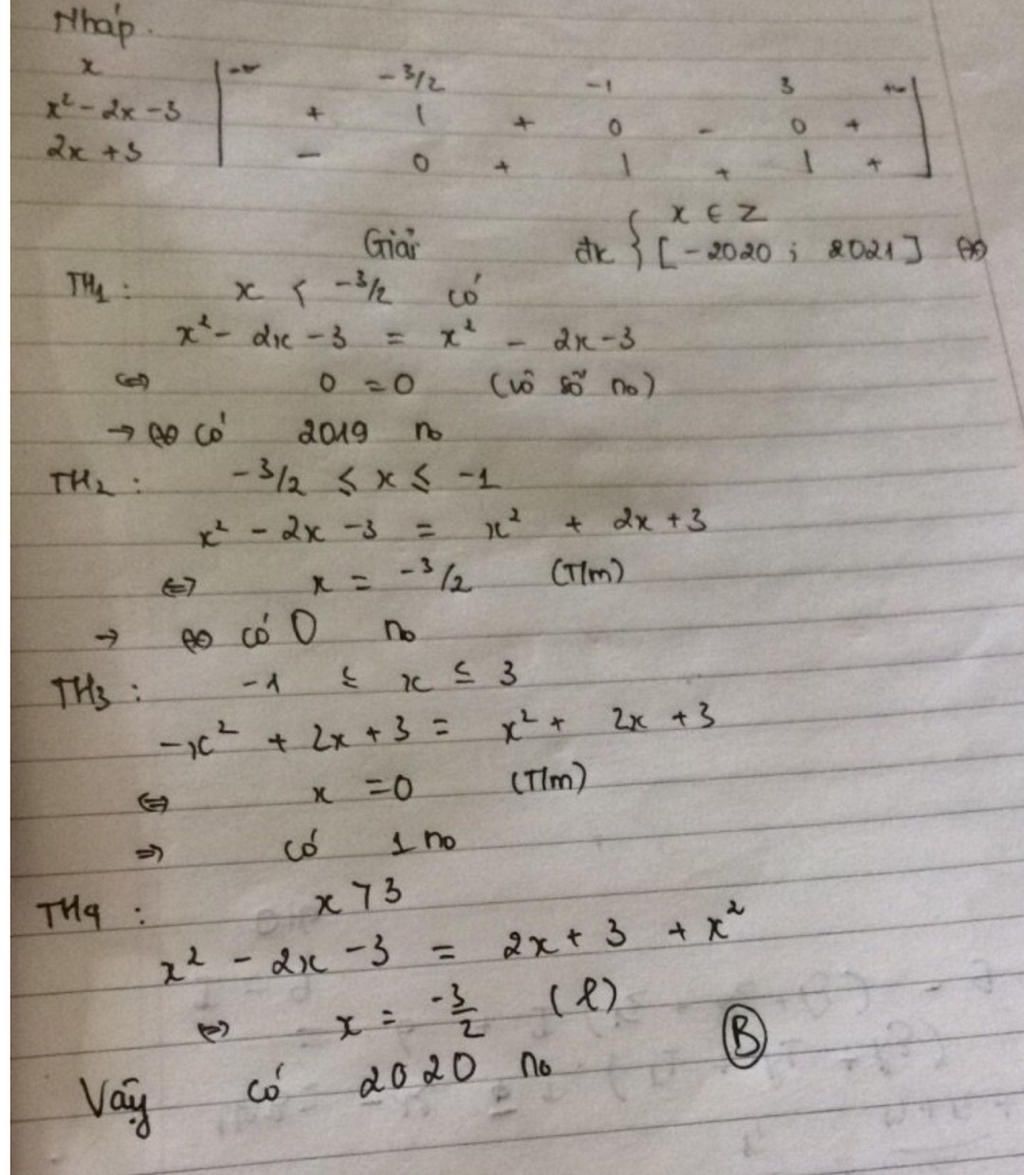 Nháp.
x | -∞ -3/2 -1 3 +∞
x² - 2x - 3 | + | + 0 - 0 +
2x + 3 | - 0 + | + | +
Giải đk { x ∈ Z
[-2020 ; 2021]
TH1 : x < -3/2 có
x² - 2x - 3 = x² - 2x - 3
⇔ 0 = 0 (vô số no)
→ có 2019 no
TH2 : -3/2 ≤ x ≤ -1
x² - 2x - 3 = x² + 2x + 3
⇔ x = -3/2 (T/m)
→ có 0 no
TH3 : -1 ≤ x ≤ 3
-x² + 2x + 3 = x² + 2x + 3
⇔ x = 0 (T/m)
⇒ có 1 no
TH4 : x > 3
x² - 2x - 3 = 2x + 3 + x²
⇔ x = -3/2 (l)
Vậy có 2020 no B